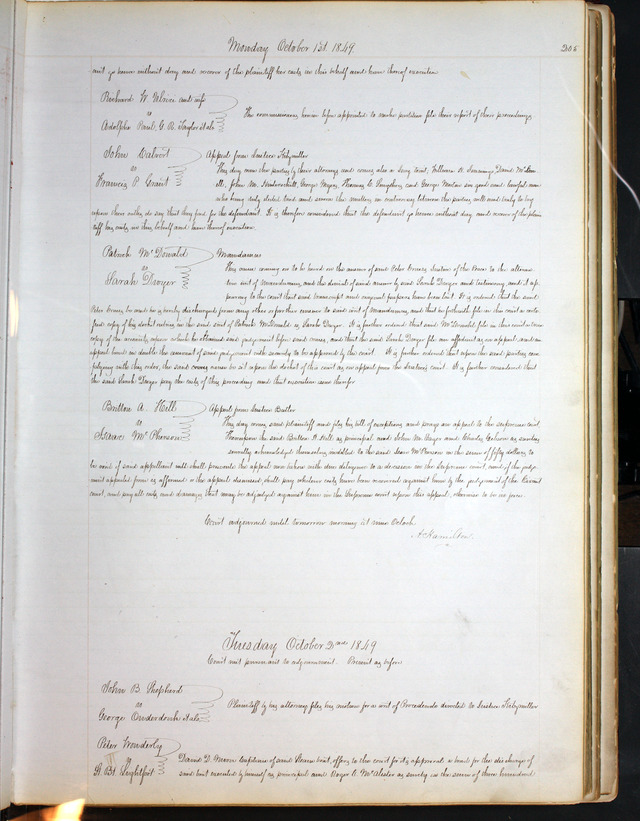 Monday October 1st. 1849
205
and go hence without day and recover of the plaintiff her costs in this behalf and have thereof execution
Richard W. and wife
vs
Adolphe Paul, G. R. Taylor et als
The commissioners herein before appointed to make partition file their report of their proceedings.
John Calvert
vs
Francis P.
Appeal from Justice
This day come the parties by their attorneys and comes also a Jury to wit, William
John M. George Thomas C. and George good and lawful men
who being duly elected tried and sworn the matters in controversy between the parties well and truly to try
upon their oaths do say that they find for the defendant. It is therefore considered that the defendant go hence without day and recover of the plain
tiff his costs in this behalf and have thereof execution.
Patrick McDonald
vs
Sarah Dwyer
Mandamus
This cause coming on to be heard on the answer of said Peter Justice of the Peace to the alterna
tive writ of Mandamus and the denial of said answer by said Sarah Dwyer and testimony and it ap
pearing to the court that said transcript and original papers have been lost. It is ordered that the said
Peter be and he is hereby discharged from any other or further answer to said writ of Mandamus, and that he forthwith file in this court a certi
fied copy of his docket entries in the said suit of Patrick McDonald vs Sarah Dwyer. It is further ordered that said McDonald file in this court a true
copy of the account upon which he obtained said judgement before said and that the said Sarah Dwyer file an affidavit for an appeal and an
appeal bond in double the amount of said judgement with security to be approved by this court. It is further ordered that upon the said parties com
plying with this order, the said cause be set upon the docket of this court as an appeal from the Justices court. It is further considered that
the said Sarah Dwyer pay the costs of this proceeding and that execution issue therefor
Britton A. Hill
vs
Isaac McPherson
Appeal from Justice Butler
This day comes said plaintiff and files his bill of exceptions and prays an appeal to the supreme court
Thereupon the said Britton A. Hill as principal and John M. and Charles as security
severally acknowledged themselves indebted to the said Isaac McPherson in the sum of fifty dollars, to
be void if said appellant will shall prosecute his appeal now taken with due diligence to a decision in the Supreme court, and if the judge
ment appealed from is affirmed or the appeal dismissed shall pay whatever costs have been recovered against him by the judgement of the Circuit
court, and pay all costs and damages that may be adjudged against him in the Supreme court upon this appeal, otherwise to be in force.
Court adjourned until tomorrow morning at nine Oclock
A Hamilton.
Tuesday October 2nd 1849
Court met pursuant to adjournment. Present as before
John B. Shepherd
vs
George et als
Plaintiff by his attorney files his motion for a writ of Procedendo directed to Justice
Peter Wonderly
vs
St. Bt. Lightfoot
David D. of said Steam boat, offers to this court for its approval a bond for the discharge of
said boat executed by himself as principal and Roger McAlister as surety in the sum of three hundred